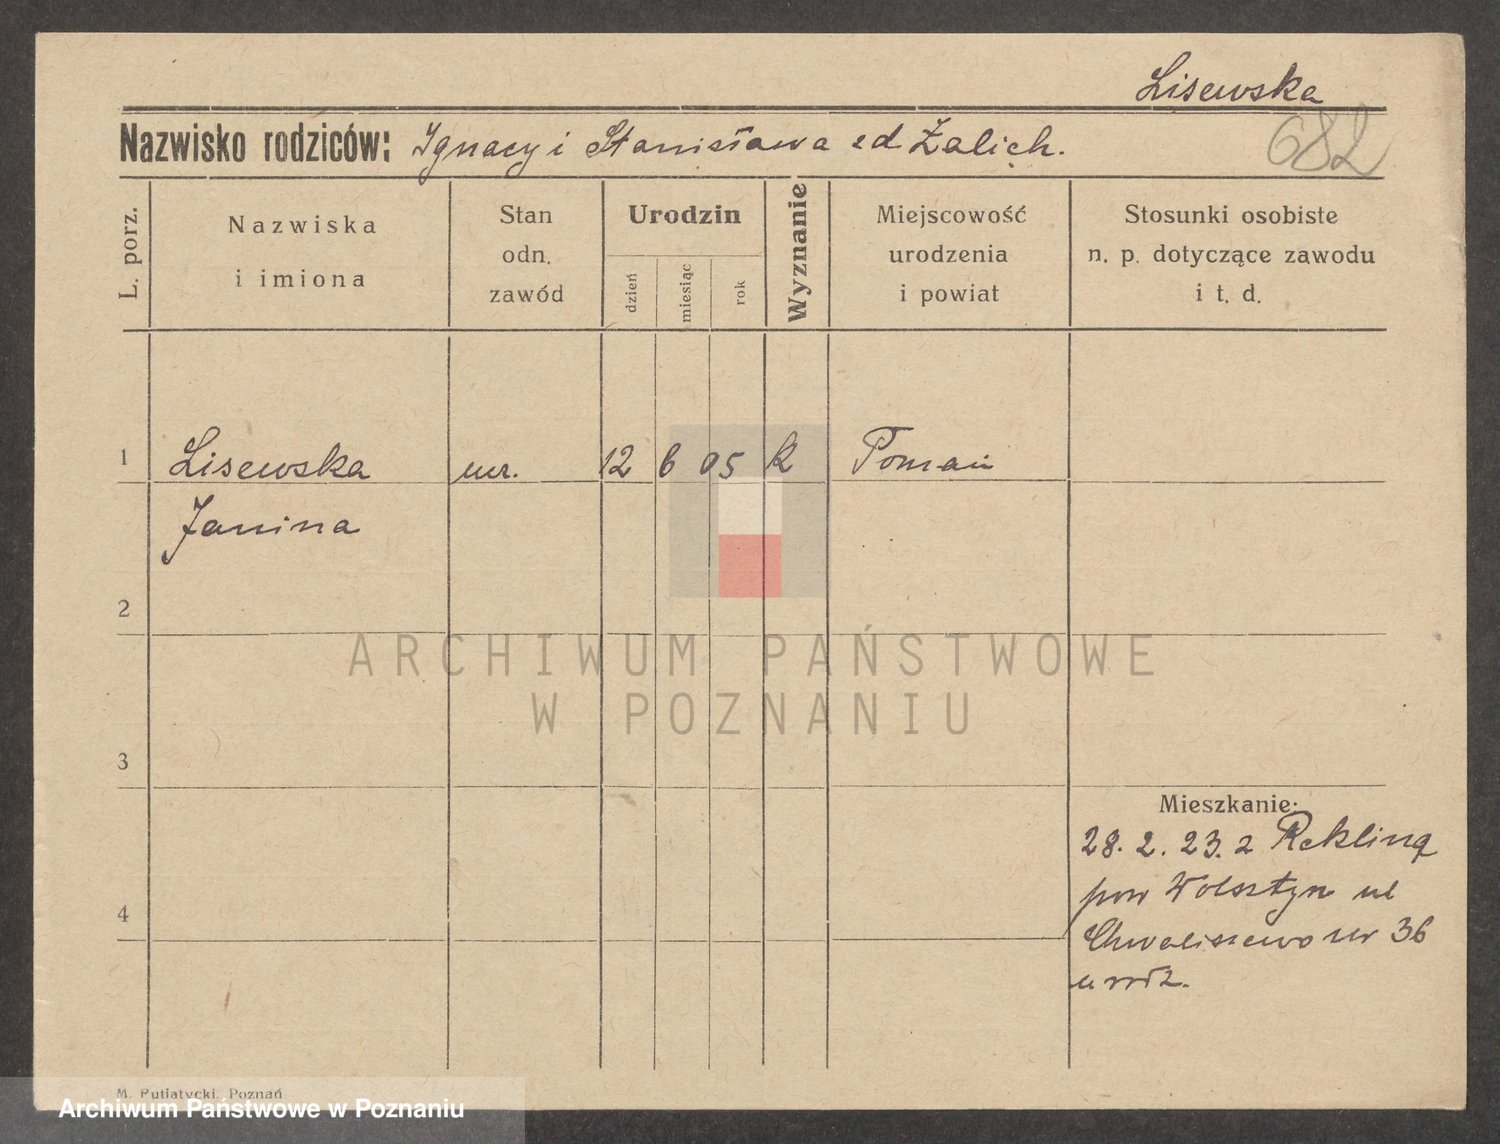 Lisewska
Nazwisko rodziców: Ignacy i Stanisława z d Żalich.
682
L. porz.
Nazwiska
i imiona
Stan
odn.
zawód
Urodzin
dzień
miesiąc
rok
Wyznanie
Miejscowość
urodzenia
i powiat
Stosunki osobiste
n. p. dotyczące zawodu
i t. d.
1 Lisewska nr. 12 6 05 k Poznań
Janina
2
ARCHIWUM PAŃSTWOWE
W POZNANIU
3
Mieszkanie:
28. 2. 23. z Rekling
pow Wolsztyn ul
4
Chwaliszewo nr 36
u rodz.
M. Putiatycki, Poznań
Archiwum Państwowe w Poznaniu